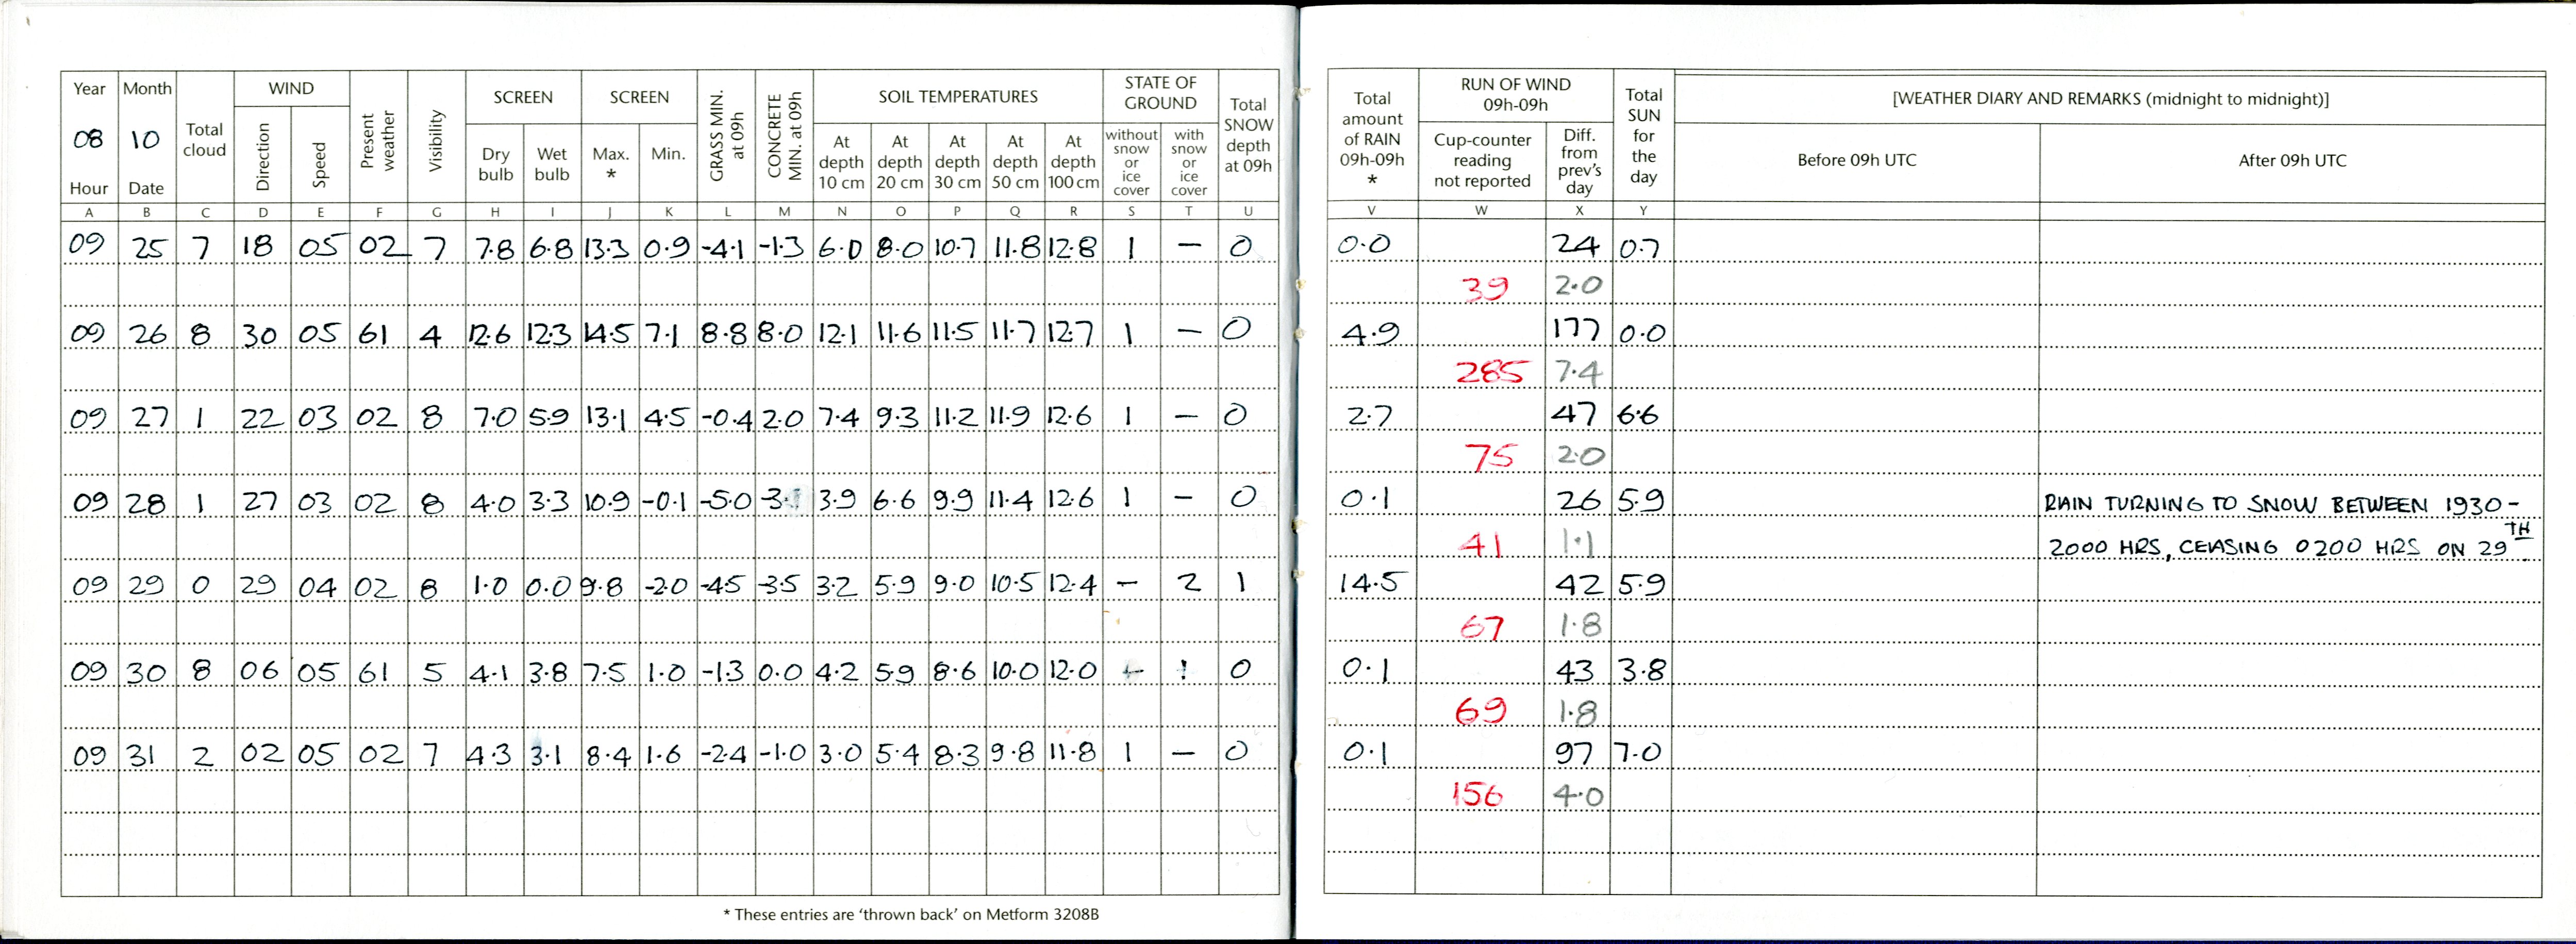 Year Month Total cloud WIND Present weather Visibility SCREEN SCREEN GRASS MIN. at 09h CONCRETE MIN. at 09h SOIL TEMPERATURES STATE OF GROUND Total SNOW depth at 09h
08 10 Direction Speed Dry bulb Wet bulb Max. * Min. At depth 10 cm At depth 20 cm At depth 30 cm At depth 50 cm At depth 100 cm without snow or ice cover with snow or ice cover
Hour Date
A B C D E F G H I J K L M N O P Q R S T U
09 25 7 18 05 02 7 7.8 6.8 13.3 0.9 -4.1 -1.3 6.0 8.0 10.7 11.8 12.8 1 — 0
09 26 8 30 05 61 4 12.6 12.3 14.5 7.1 8.8 8.0 12.1 11.6 11.5 11.7 12.7 1 — 0
09 27 1 22 03 02 8 7.0 5.9 13.1 4.5 -0.4 2.0 7.4 9.3 11.2 11.9 12.6 1 — 0
09 28 1 27 03 02 8 4.0 3.3 10.9 -0.1 -5.0 3.9 6.6 9.9 11.4 12.6 1 — 0
09 29 0 29 04 02 8 1.0 0.0 9.8 -2.0 -4.5 -3.5 3.2 5.9 9.0 10.5 12.4 — 2 1
09 30 8 06 05 61 5 4.1 3.8 7.5 1.0 -1.3 0.0 4.2 5.9 8.6 10.0 12.0 0
09 31 2 02 05 02 7 4.3 3.1 8.4 1.6 -2.4 -1.0 3.0 5.4 8.3 9.8 11.8 1 — 0
* These entries are ‘thrown back’ on Metform 3208B
Total amount of RAIN 09h-09h * RUN OF WIND 09h-09h Total SUN for the day [WEATHER DIARY AND REMARKS (midnight to midnight)]
Cup-counter reading not reported Diff. from prev's day Before 09h UTC After 09h UTC
V W X Y
0.0 24 0.7
39 2.0
4.9 177 0.0
285 7.4
2.7 47 6.6
75 2.0
0.1 26 5.9 RAIN TURNING TO SNOW BETWEEN 1930 -
41 1.1 2000 HRS, CEASING 0200 HRS ON 29TH
14.5 42 5.9
67 1.8
0.1 43 3.8
69 1.8
0.1 97 7.0
156 4.0